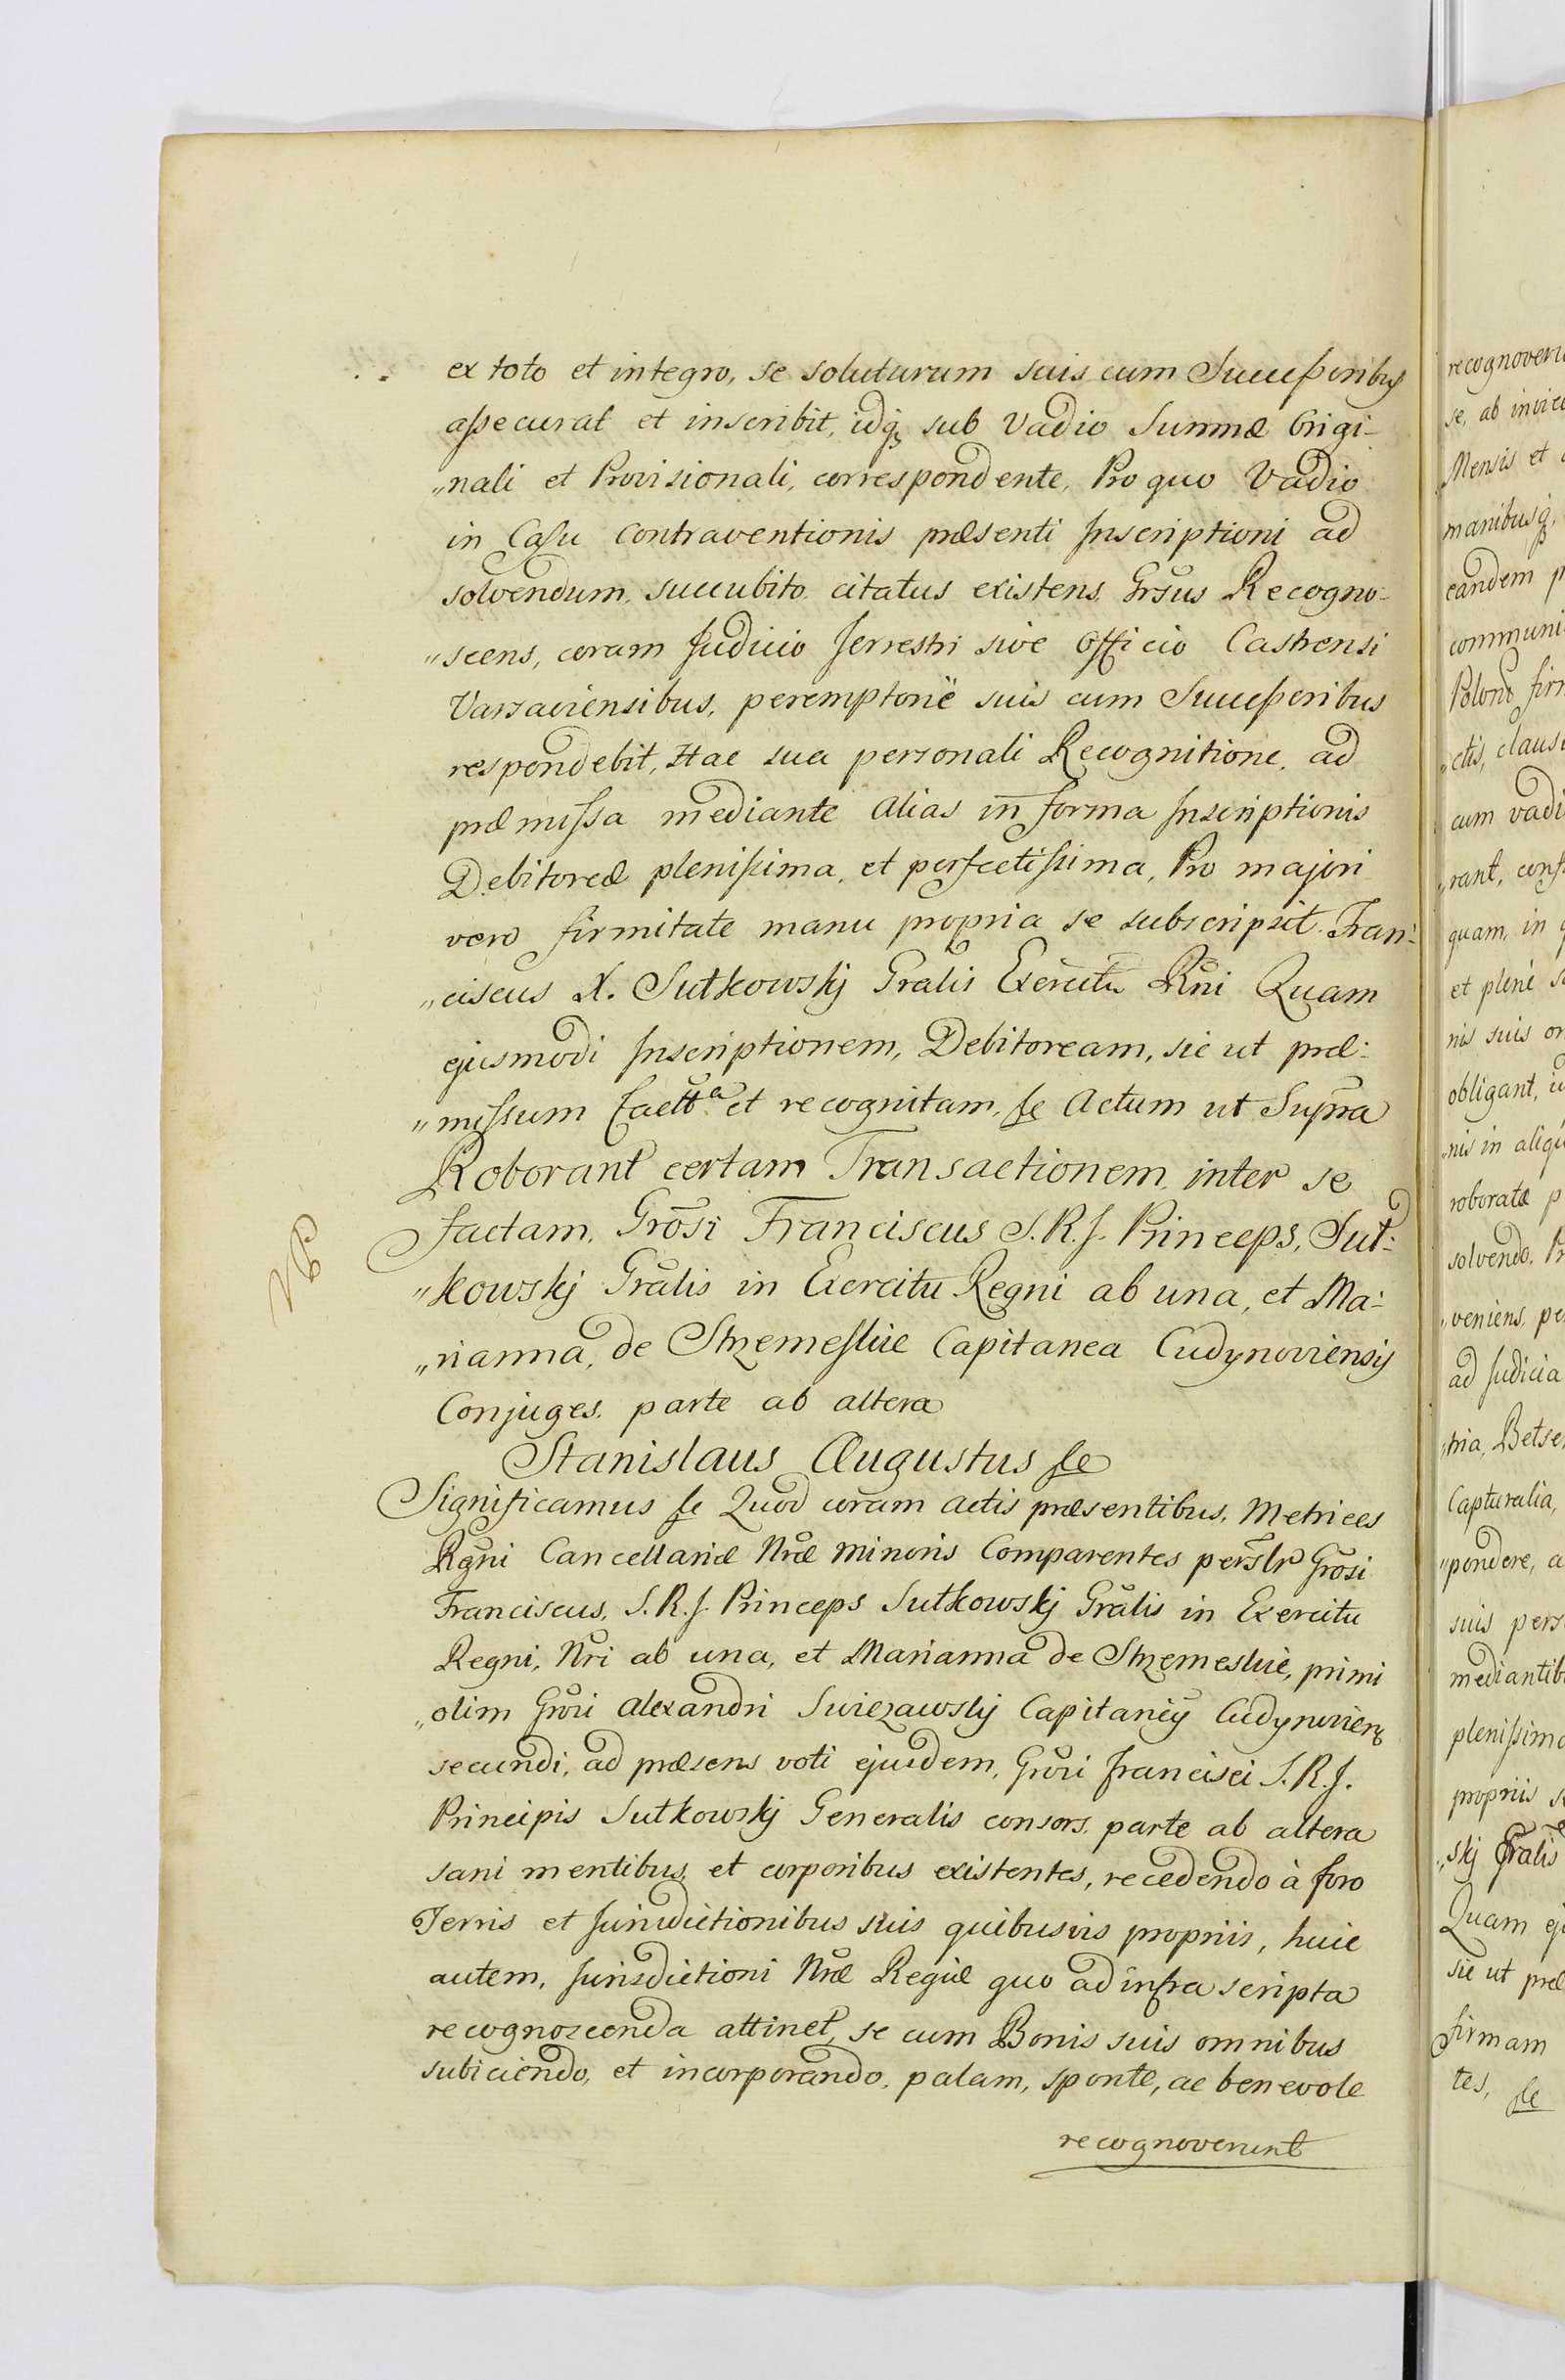 ex toto et integro, se soluturum suis cum Successoribus
assecurat et inscribit, idq₃ sub Vadio Summæ Origi-
„nali et Provisionali, correspondente, Pro quo Vadio
in Casu Contraventionis præsenti Inscriptioni ad
solvendum, succubito citatus existens, Grsus Recogno-
„scens, coram Judicio Terrestri sive Officio Castrensi
Varsaviensibus, peremptorië suis cum Successoribus
respondebit, Hac sua personali Recognitione, ad
præmissa mediante alias in forma Inscriptionis
Debitoreæ plenissima, et perfectissima, Pro majori
vero firmitate manu propria se subscripsit. Fran:
„ciscus X. Sułkowskj Gralis Exercitu Rni Quam
ejusmodi Inscriptionem, Debitoream, sic ut præ:
„missum et recognitam, &c Actum ut Supra
Roborant certam Transactionem, inter se
factam, Grosi Franciscus S. R. J. Princeps, Suł:
„kowskj Gralis in Exercitu Regni ab una, et Ma:
„rianna, de Strzemeskie Capitanea Cudynoviensis
Conjuges, parte ab altera
NB
Stanislaus Augustus &c
Significamus &c Quod coram actis præsentibus, Metrices
Rgni Cancellariæ Nræ Minoris Comparentes persłr Grosi
Franciscus, S. R. J. Princeps Sułkowskj Gralis in Exercitu
Regni, Nri ab una, et Marianna de Strzemeskie, primi
„olim Grosi Alexandri Swiezawskj Capitanëy Cudynovien₃
secundi, ad præsens voti ejusdem, Grosi Francisci S. R. J.
Principis Sułkowskj Generalis consors, parte ab altera
sani mentibus, et corporibus existentes, recedendo à foro
Terris et Jurisdictionibus suis quibusvis propriis, huic
autem, Jurisdictioni Nræ Regiæ quo ad infra scripta
recognoscenda attinet, se cum Bonis suis omnibus
subiciendo, et incorporando, palam, sponte, ac benevole
recognoverunt
recognoveru
se, ab invice
Mensis et
manibusq₃
eandem p
communi
Polono firm
„ctis, clausu
cum vadi
„rant, cons
quam, in
et plenè s
nis suis om
obligant,
„nis in aliqu
roboratæ p
solvendo, Pr
„veniens, pe
ad Judicia
„tria, Betse
Capturalia,
„pondere, a
suis pers
mediantib
plenissima
propriis s
„skj Gralis
Quam eju
sic ut præ
firmam
tes, &c